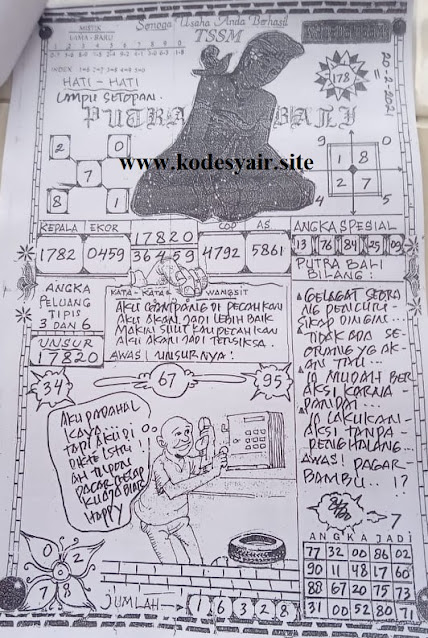 Semoga Usaha Anda Berhasil
TSSM
MISTIK
LAMA - BARU
1 2 3 4 5 6 7 8 9 0
INDEX
HATI - HATI
LAMPU SETOPAN.
20-2-2021
178
PUTRA BALI
www.kodesyair.site
2 0
7
8 1
9 0
1 8
2 7
4 5
KEPALA EKOR
1782 0459
17820
36459
COP AS
4792 5861
ANGKA SPESIAL
13 76 84 25 09
PUTRA BALI
BILANG :
ANGKA
PELUANG
TIPIS
3 DAN 6
UNSUR
17820
KATA - KATA WANGSIT
AKU GAMPANG DI PECAHKAN
AKU AKAN JADI LEBIH BAIK
MAKIN SULIT KAU PECAHKAN
AKU AKAN JADI TERSIKSA.
AWAS! UNSURNYA!
GELAGAT SEORA
NG PENCURI
SIKAP DINGIN...
TIDAK ADA SE-
ORANG YG AK-
AN TAU...
IA MUDAH BER
AKSI KARNA
PANDAI...
LAKUKAN
AKSI TANPA
PENGHALANG...
AWAS! PAGAR
BAMBU..!?
34
67
95
AKU PADAHAL
KAYA..
TAPI AKU DI
ISTRI
HAPPY
7
ANGKA JADI
77 32 00 86 02
90 11 48 17 60
88 67 20 75 73
31 00 52 80 71
0
2
7 8
JUMLAH
1 6 3 2 8